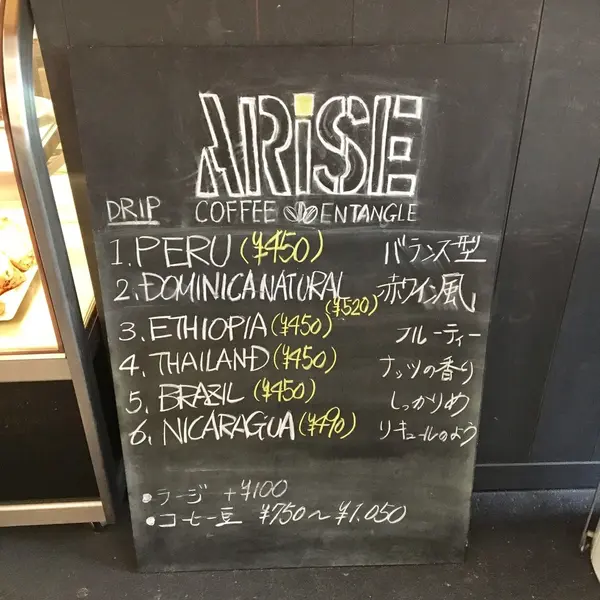 ARiSE
COFFEE ENTANGLE
DRIP
1. PERU (¥450) バランス型
2. DOMINICA NATURAL (¥520) 赤ワイン風
3. ETHIOPIA (¥450) フルーティー
4. THAILAND (¥450) ナッツの香り
5. BRAZIL (¥450) しっかりめ
6. NICARAGUA (¥490) リキュールのよう
• ラージ +¥100
• コーヒー豆 ¥750〜¥1,050